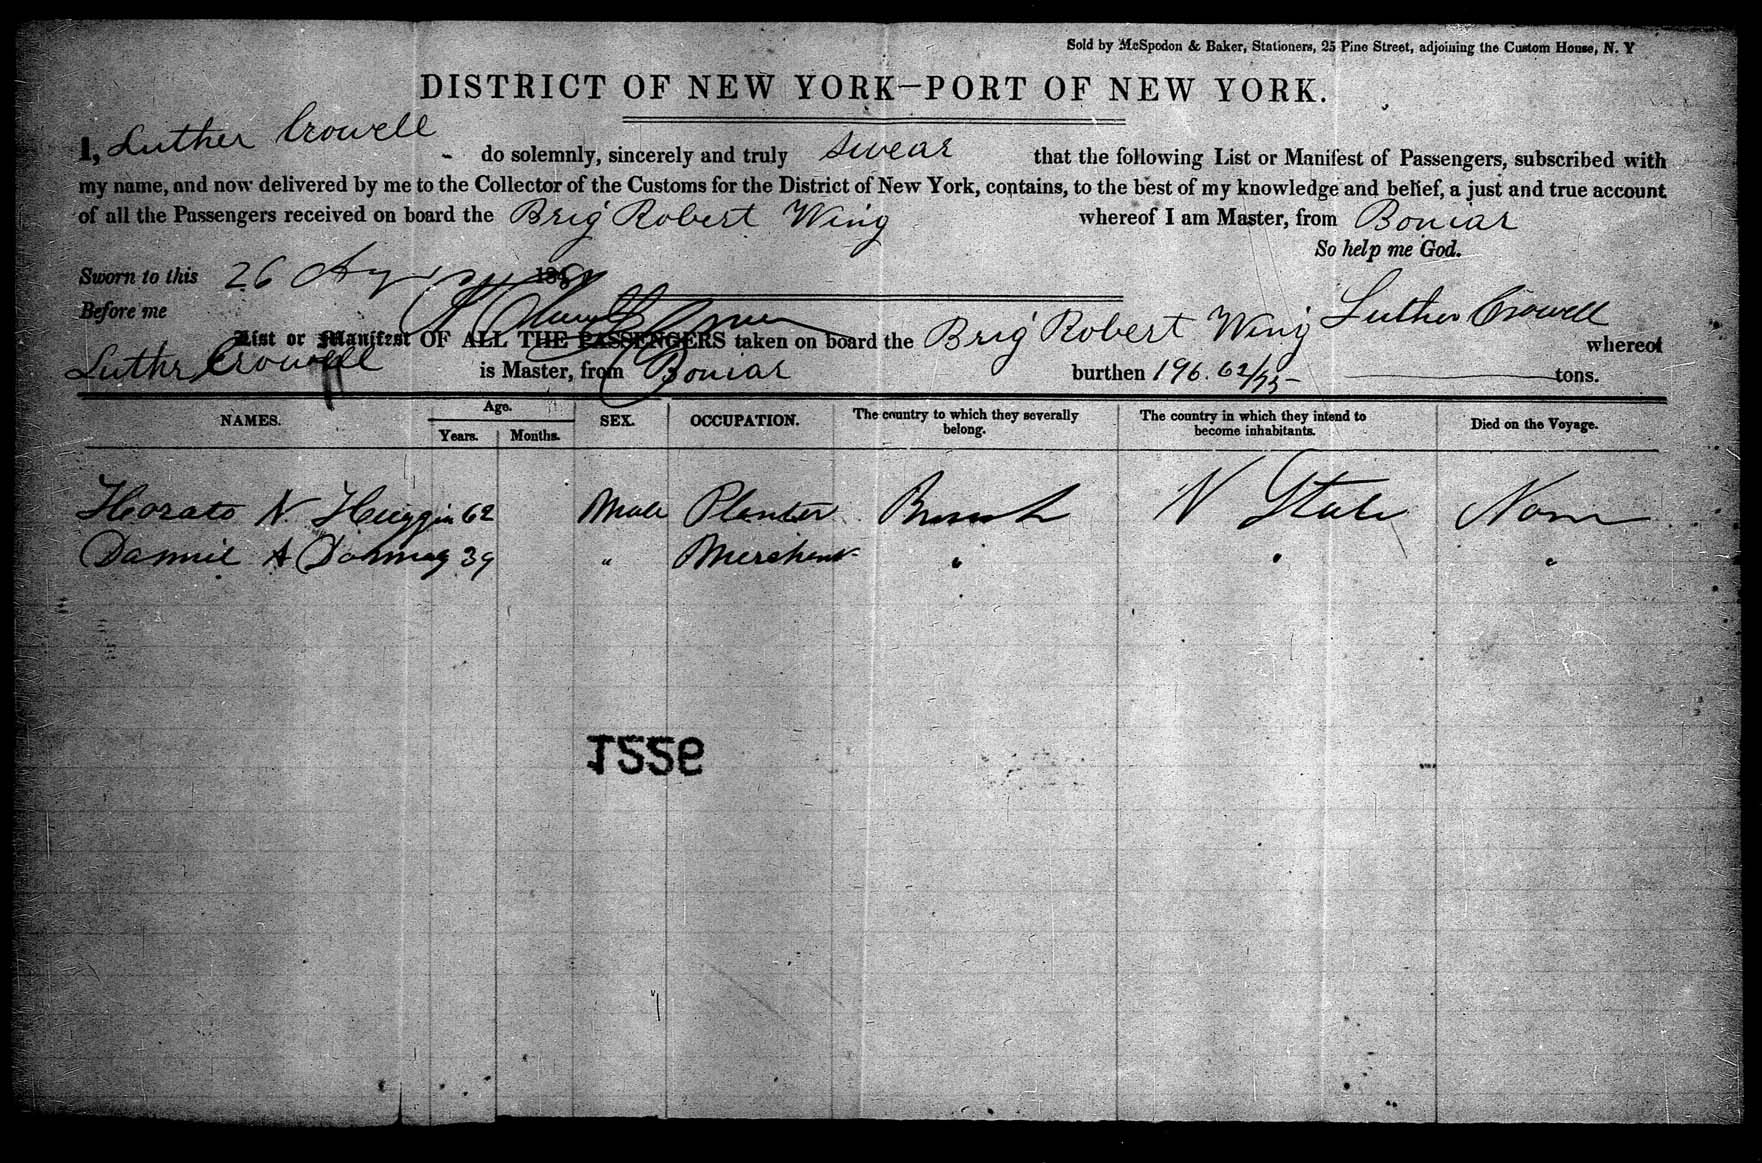 Sold by McSpedon & Baker, Stationers, 25 Pine Street, adjoining the Custom House, N. Y
DISTRICT OF NEW YORK—PORT OF NEW YORK.
I, Luther Crowell do solemnly, sincerely and truly swear that the following List or Manifest of Passengers, subscribed with
my name, and now delivered by me to the Collector of the Customs for the District of New York, contains, to the best of my knowledge and belief, a just and true account
of all the Passengers received on board the Brig Robert Wing whereof I am Master, from Boniar
So help me God.
Sworn to this 26
Before me Luther Crowell
List or Manifest OF ALL THE PASSENGERS taken on board the Brig Robert Wing whereof
Luthr Crowell is Master, from Boniar burthen 196. 62/95 tons.
NAMES. Age. Years. Months. SEX. OCCUPATION. The country to which they severally belong. The country in which they intend to become inhabitants. Died on the Voyage.
Horato N. Huggin 62 Male Planter N State Non
Dannil A 39 " Merchant " " "
1559